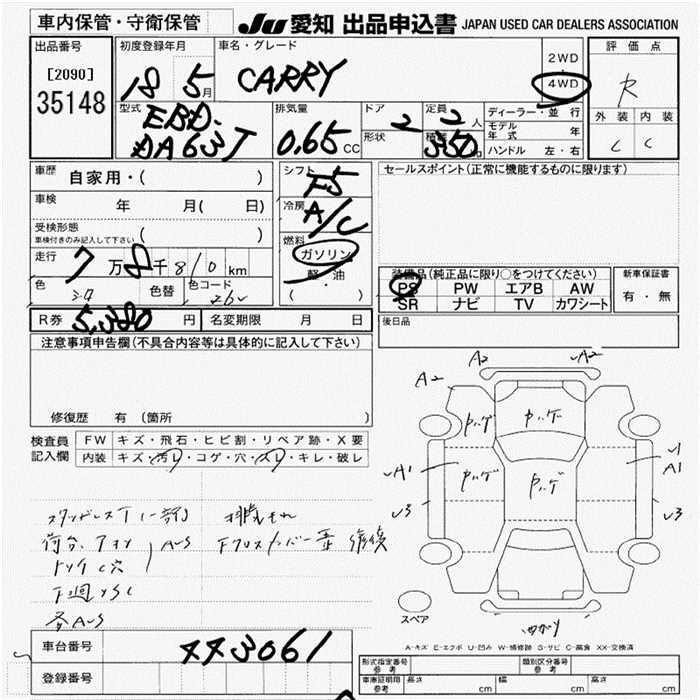 車内保管・守衛保管
JU 愛知 出品申込書 JAPAN USED CAR DEALERS ASSOCIATION
出品番号
[2090]
35148
初度登録年月
18 5月
車名・グレード
CARRY
2WD
4WD
評価点
R
外装 内装
C C
型式
EBD-
DA63T
排気量
0.65 CC
ドア 2
形状
定員 2人
積載 350
ディーラー・並行
モデル年式 年
ハンドル 左・右
車歴 自家用・( )
車検 年 月( 日)
受検形態 ( )
車検付きのみ記入して下さい
走行 7万8千810km
色 シロ 色替 色コード 26U
シフト F5
冷房 A/C
燃料
ガソリン
軽・油
( )
セールスポイント(正常に機能するものに限ります)
装備品(純正品に限り○をつけてください)
PS PW エアB AW
SR ナビ TV カワシート
新車保証書
有・無
後日品
R券 5,380円 名変期限 月 日
注意事項申告欄(不具合内容等は具体的に記入して下さい)
修復歴 有 (箇所 )
検査員記入欄
FW キズ・飛石・ヒビ割・リペア跡・X要
内装 キズ・汚れ・コゲ・穴・スレ・キレ・破レ
荷台
各AuS
A2 A2
A2
A1
U3
A1
U3
スペア
A-キズ E-エクボ U-凹み W-補修跡 S-サビ C-腐食 XX-交換済
車台番号 XX3061
登録番号
形式指定番号 参考 類別区分番号 参考
車庫証明用 参考 長さ cm 幅 cm 高さ cm